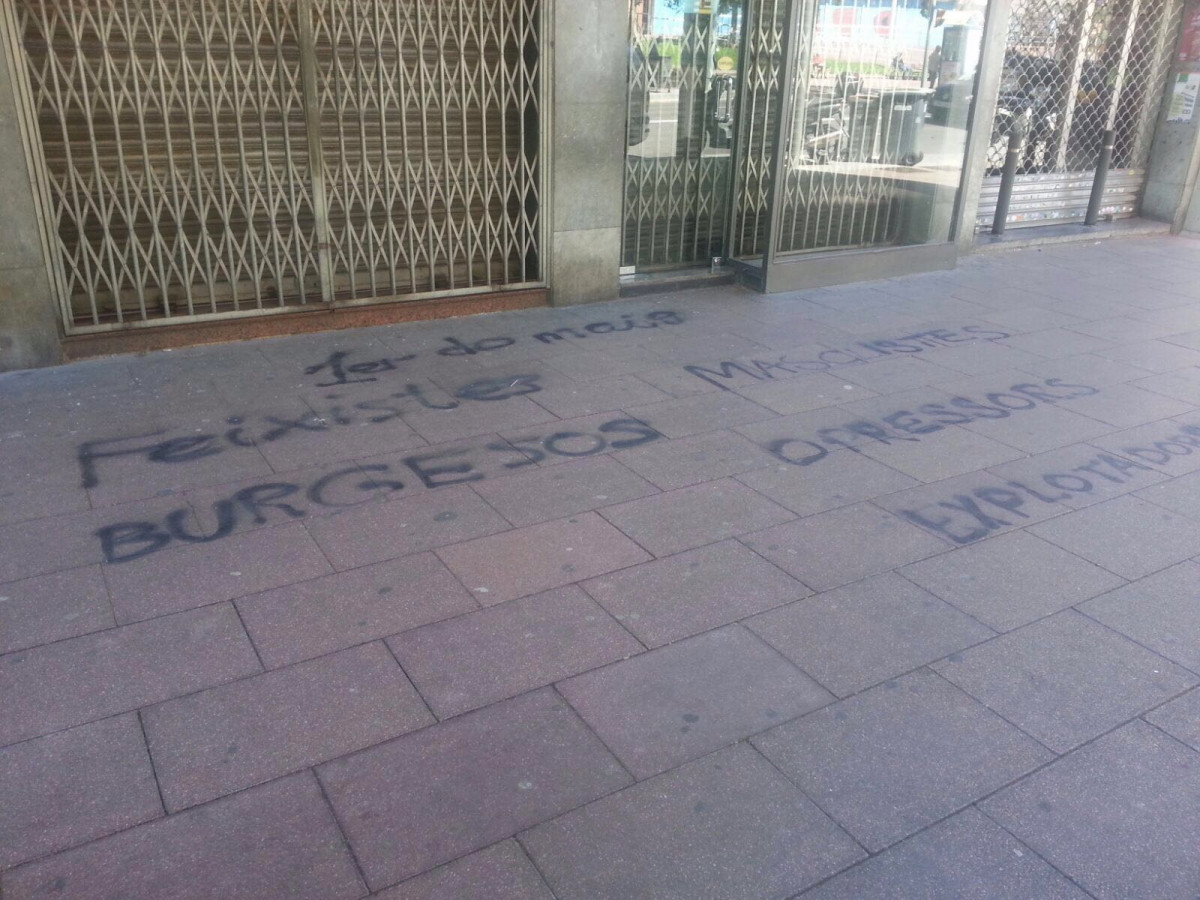 1er do maig
Feixistes
BURGESOS
MASCLISTES
OPRESSORS
EXPLOTADORS